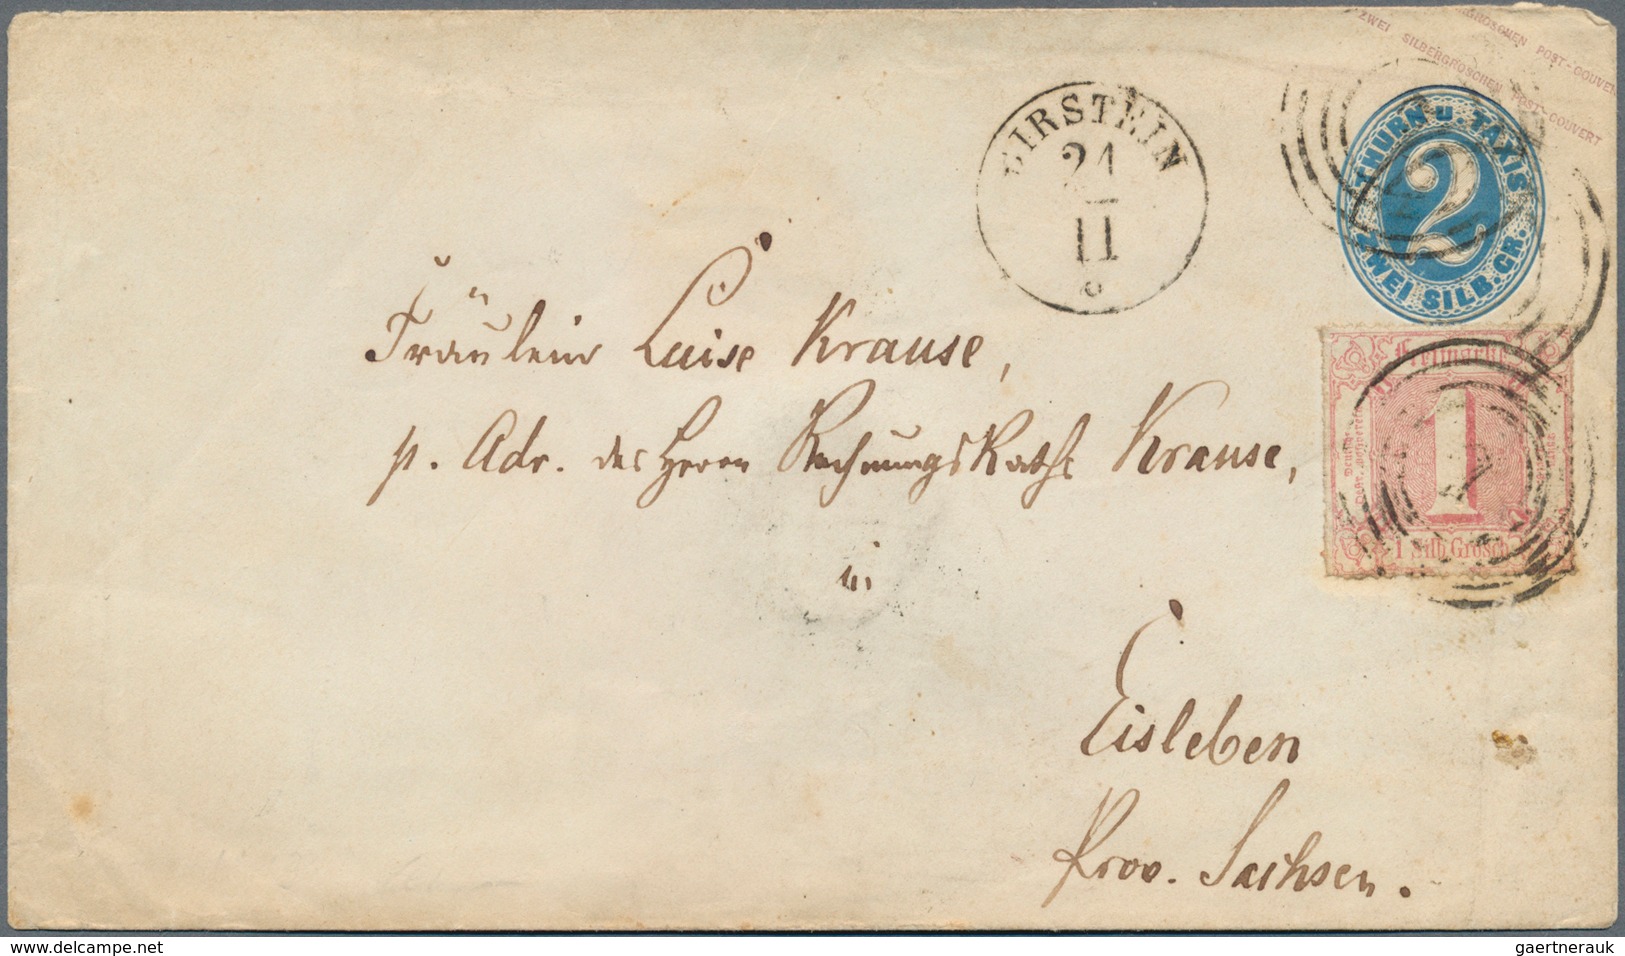 GROSCHEN POST-COUVERT
ZWEI SILBERGROSCHEN POST-COUVERT
BIRSTEIN
21
11
THURN U. TAXIS
2
ZWEI SILB. GR.
Freimarke
1
1 Silb. Grosch
Fräulein Luise Krause,
p. Adr. des Herrn Rechnungs Raths Krause,
in
Eisleben
Prov. Sachsen.
delcampe.net
gaertnerauk